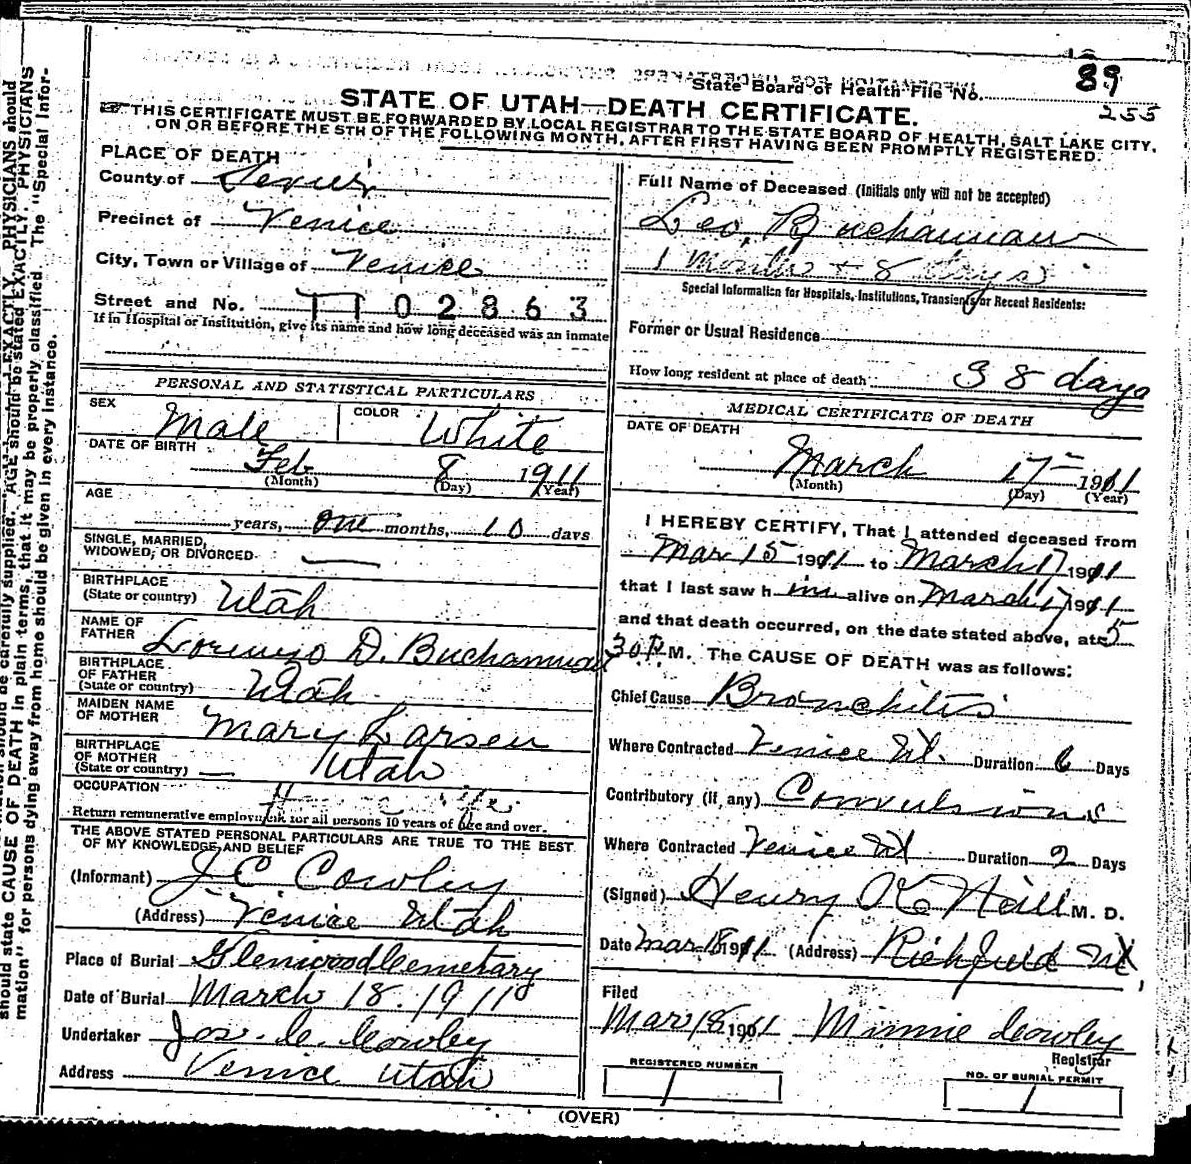 89
State Board of Health File No.
255
STATE OF UTAH—DEATH CERTIFICATE.
THIS CERTIFICATE MUST BE FORWARDED BY LOCAL REGISTRAR TO THE STATE BOARD OF HEALTH, SALT LAKE CITY,
ON OR BEFORE THE 5TH OF THE FOLLOWING MONTH, AFTER FIRST HAVING BEEN PROMPTLY REGISTERED.
PLACE OF DEATH
County of Sevier
Precinct of Venice
City, Town or Village of Venice
Street and No. 1102863
If in Hospital or Institution, give its name and how long deceased was an inmate
PERSONAL AND STATISTICAL PARTICULARS
SEX Male COLOR White
DATE OF BIRTH Feb 8 1911
(Month) (Day) (Year)
AGE
years, one months, 10 days
SINGLE, MARRIED,
WIDOWED, OR DIVORCED
BIRTHPLACE
(State or country) Utah
NAME OF
FATHER Lorenzo D. Buchannan
BIRTHPLACE
OF FATHER
(State or country) Utah
MAIDEN NAME
OF MOTHER Mary Larsen
BIRTHPLACE
OF MOTHER
(State or country) Utah
OCCUPATION
Return remunerative employment for all persons 10 years of age and over.
THE ABOVE STATED PERSONAL PARTICULARS ARE TRUE TO THE BEST
OF MY KNOWLEDGE AND BELIEF
(Informant) J. C. Cowley
(Address) Venice Utah
Place of Burial Glenwood Cemetary
Date of Burial March 18. 1911
Undertaker Jos. C. Cowley
Address Venice Utah
Full Name of Deceased (Initials only will not be accepted)
Leo, Buchannan
1 Months + 8 days
Special Information for Hospitals, Institutions, Transients or Recent Residents:
Former or Usual Residence
How long resident at place of death 38 days
MEDICAL CERTIFICATE OF DEATH
DATE OF DEATH
March 17 1911
(Month) (Day) (Year)
I HEREBY CERTIFY, That I attended deceased from
Mar 15 1911 to March 17 1911
that I last saw him alive on March 17 1911
and that death occurred, on the date stated above, at 5
30 P. M. The CAUSE OF DEATH was as follows:
Chief Cause Bronchitis
Where Contracted Venice Ut. Duration 6 Days
Contributory (if any) Convulsions
Where Contracted Venice Ut Duration 2 Days
(Signed) Henry O'Neill M. D.
Date Mar 18 1911 (Address) Richfield Ut
Filed
Mar 18 1911 Minnie Cowley
Registrar
REGISTERED NUMBER
1
NO. OF BURIAL PERMIT
1
(OVER)
should state CAUSE OF DEATH in plain terms, that it may be properly classified. The "Special Infor-
mation" for persons dying away from home should be given in every instance.